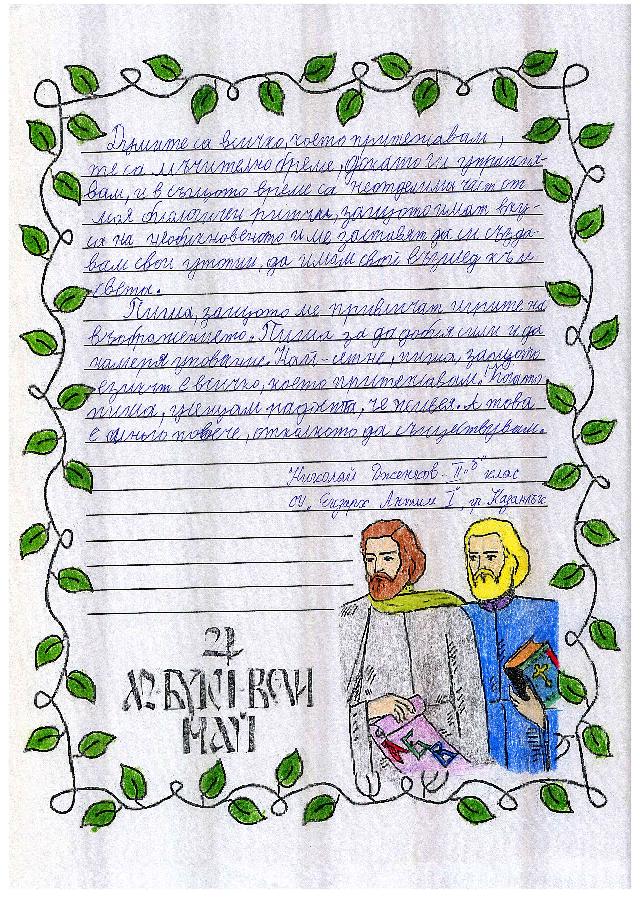 Думите са всичко, което притежавам,
те са мъчително бреме, докато ги
вам, и в същото време са неотделима част от
моя биологичен ритъм, защото имат вку-
са на необикновеното и ме заставят да си създа-
вам свои утопии, да имам свой възглед към
света.
Пиша, защото ме привличат игрите на
въображението. Пиша за да добия сили и да
намеря упование. Най-вече, пиша, защото
езикът е всичко, което притежавам. Когато
пиша, усещам радостта, че живея. А това
е много повече, отколкото да съществувам.
Николай - II "б" клас
ОУ "Екзарх Антим I", гр. Казанлък
24
АЗ·БУКИ·ВЕДИ
МАЙ
А Б В